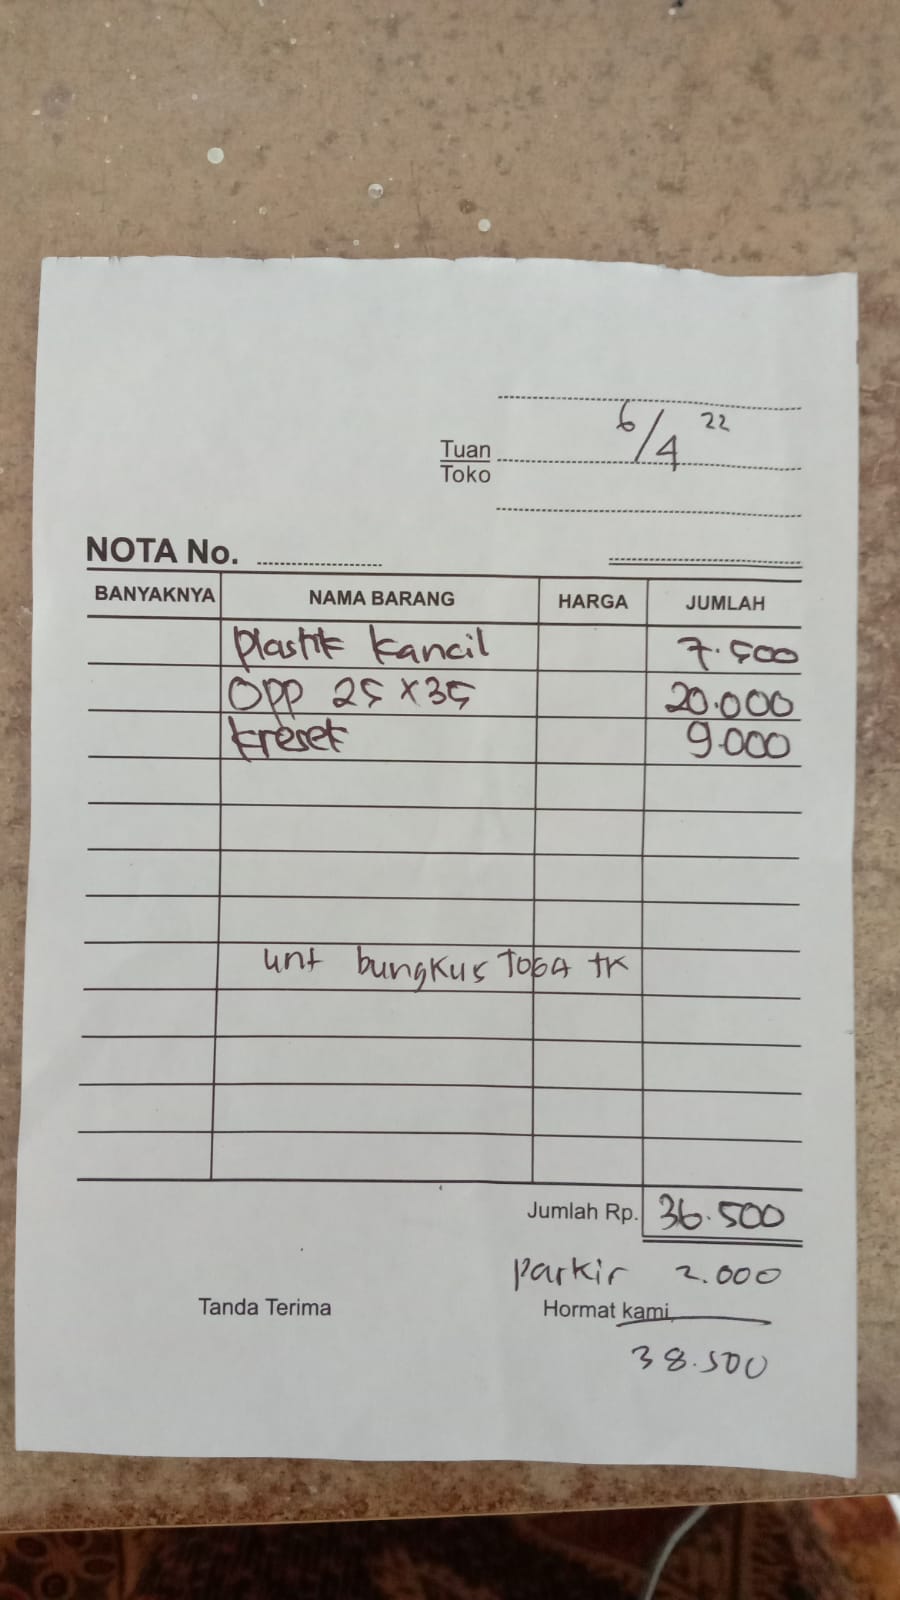 6/4 22
Tuan
Toko
NOTA No.
BANYAKNYA NAMA BARANG HARGA JUMLAH
plastik kancil 7.500
OPP 25 x 35 20.000
kreset 9.000
unt bungkus TOGA TK
Jumlah Rp. 36.500
parkir 2.000
Tanda Terima Hormat kami
38.500